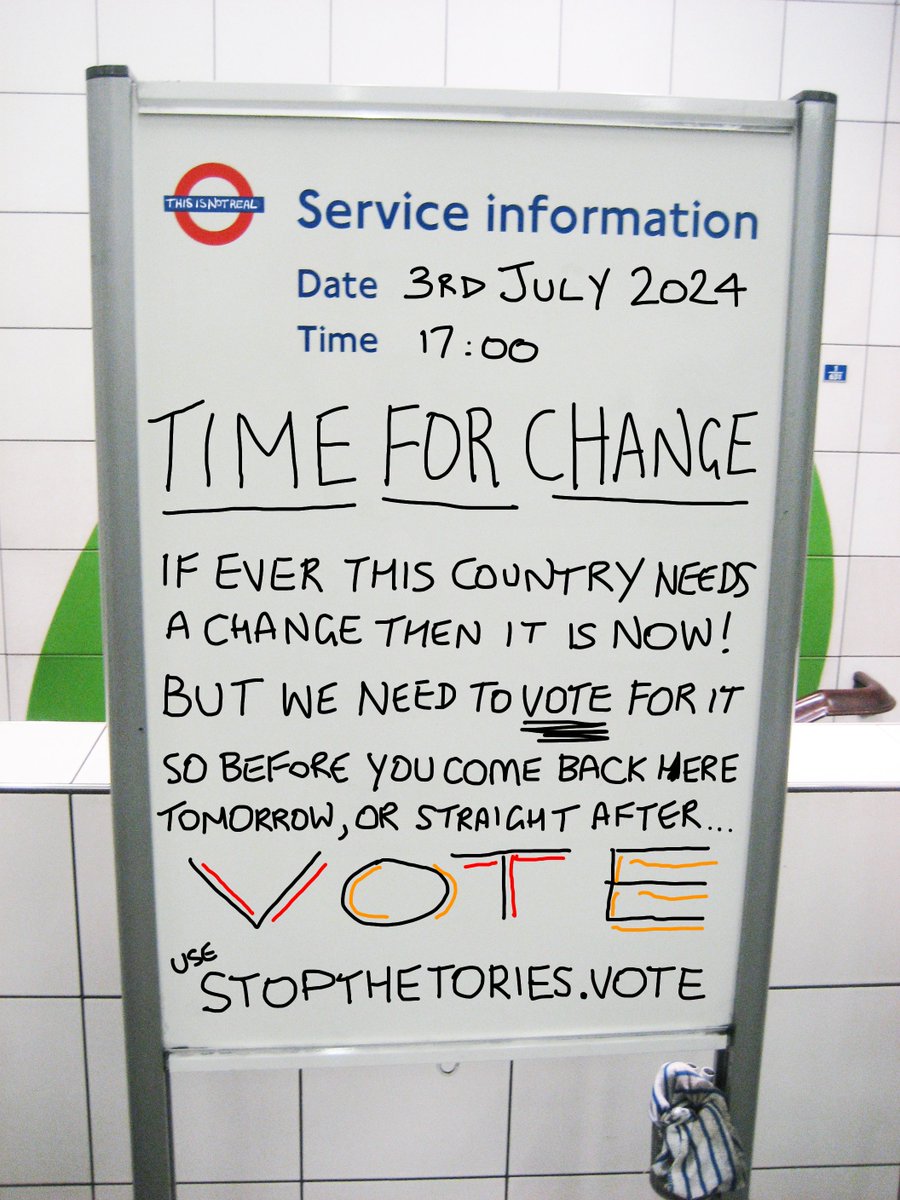 THIS IS NOT REAL
Service information
Date 3RD JULY 2024
Time 17:00
TIME FOR CHANGE
IF EVER THIS COUNTRY NEEDS
A CHANGE THEN IT IS NOW!
BUT WE NEED TO VOTE FOR IT
SO BEFORE YOU COME BACK HERE
TOMORROW, OR STRAIGHT AFTER...
VOTE
USE
STOPTHETORIES.VOTE